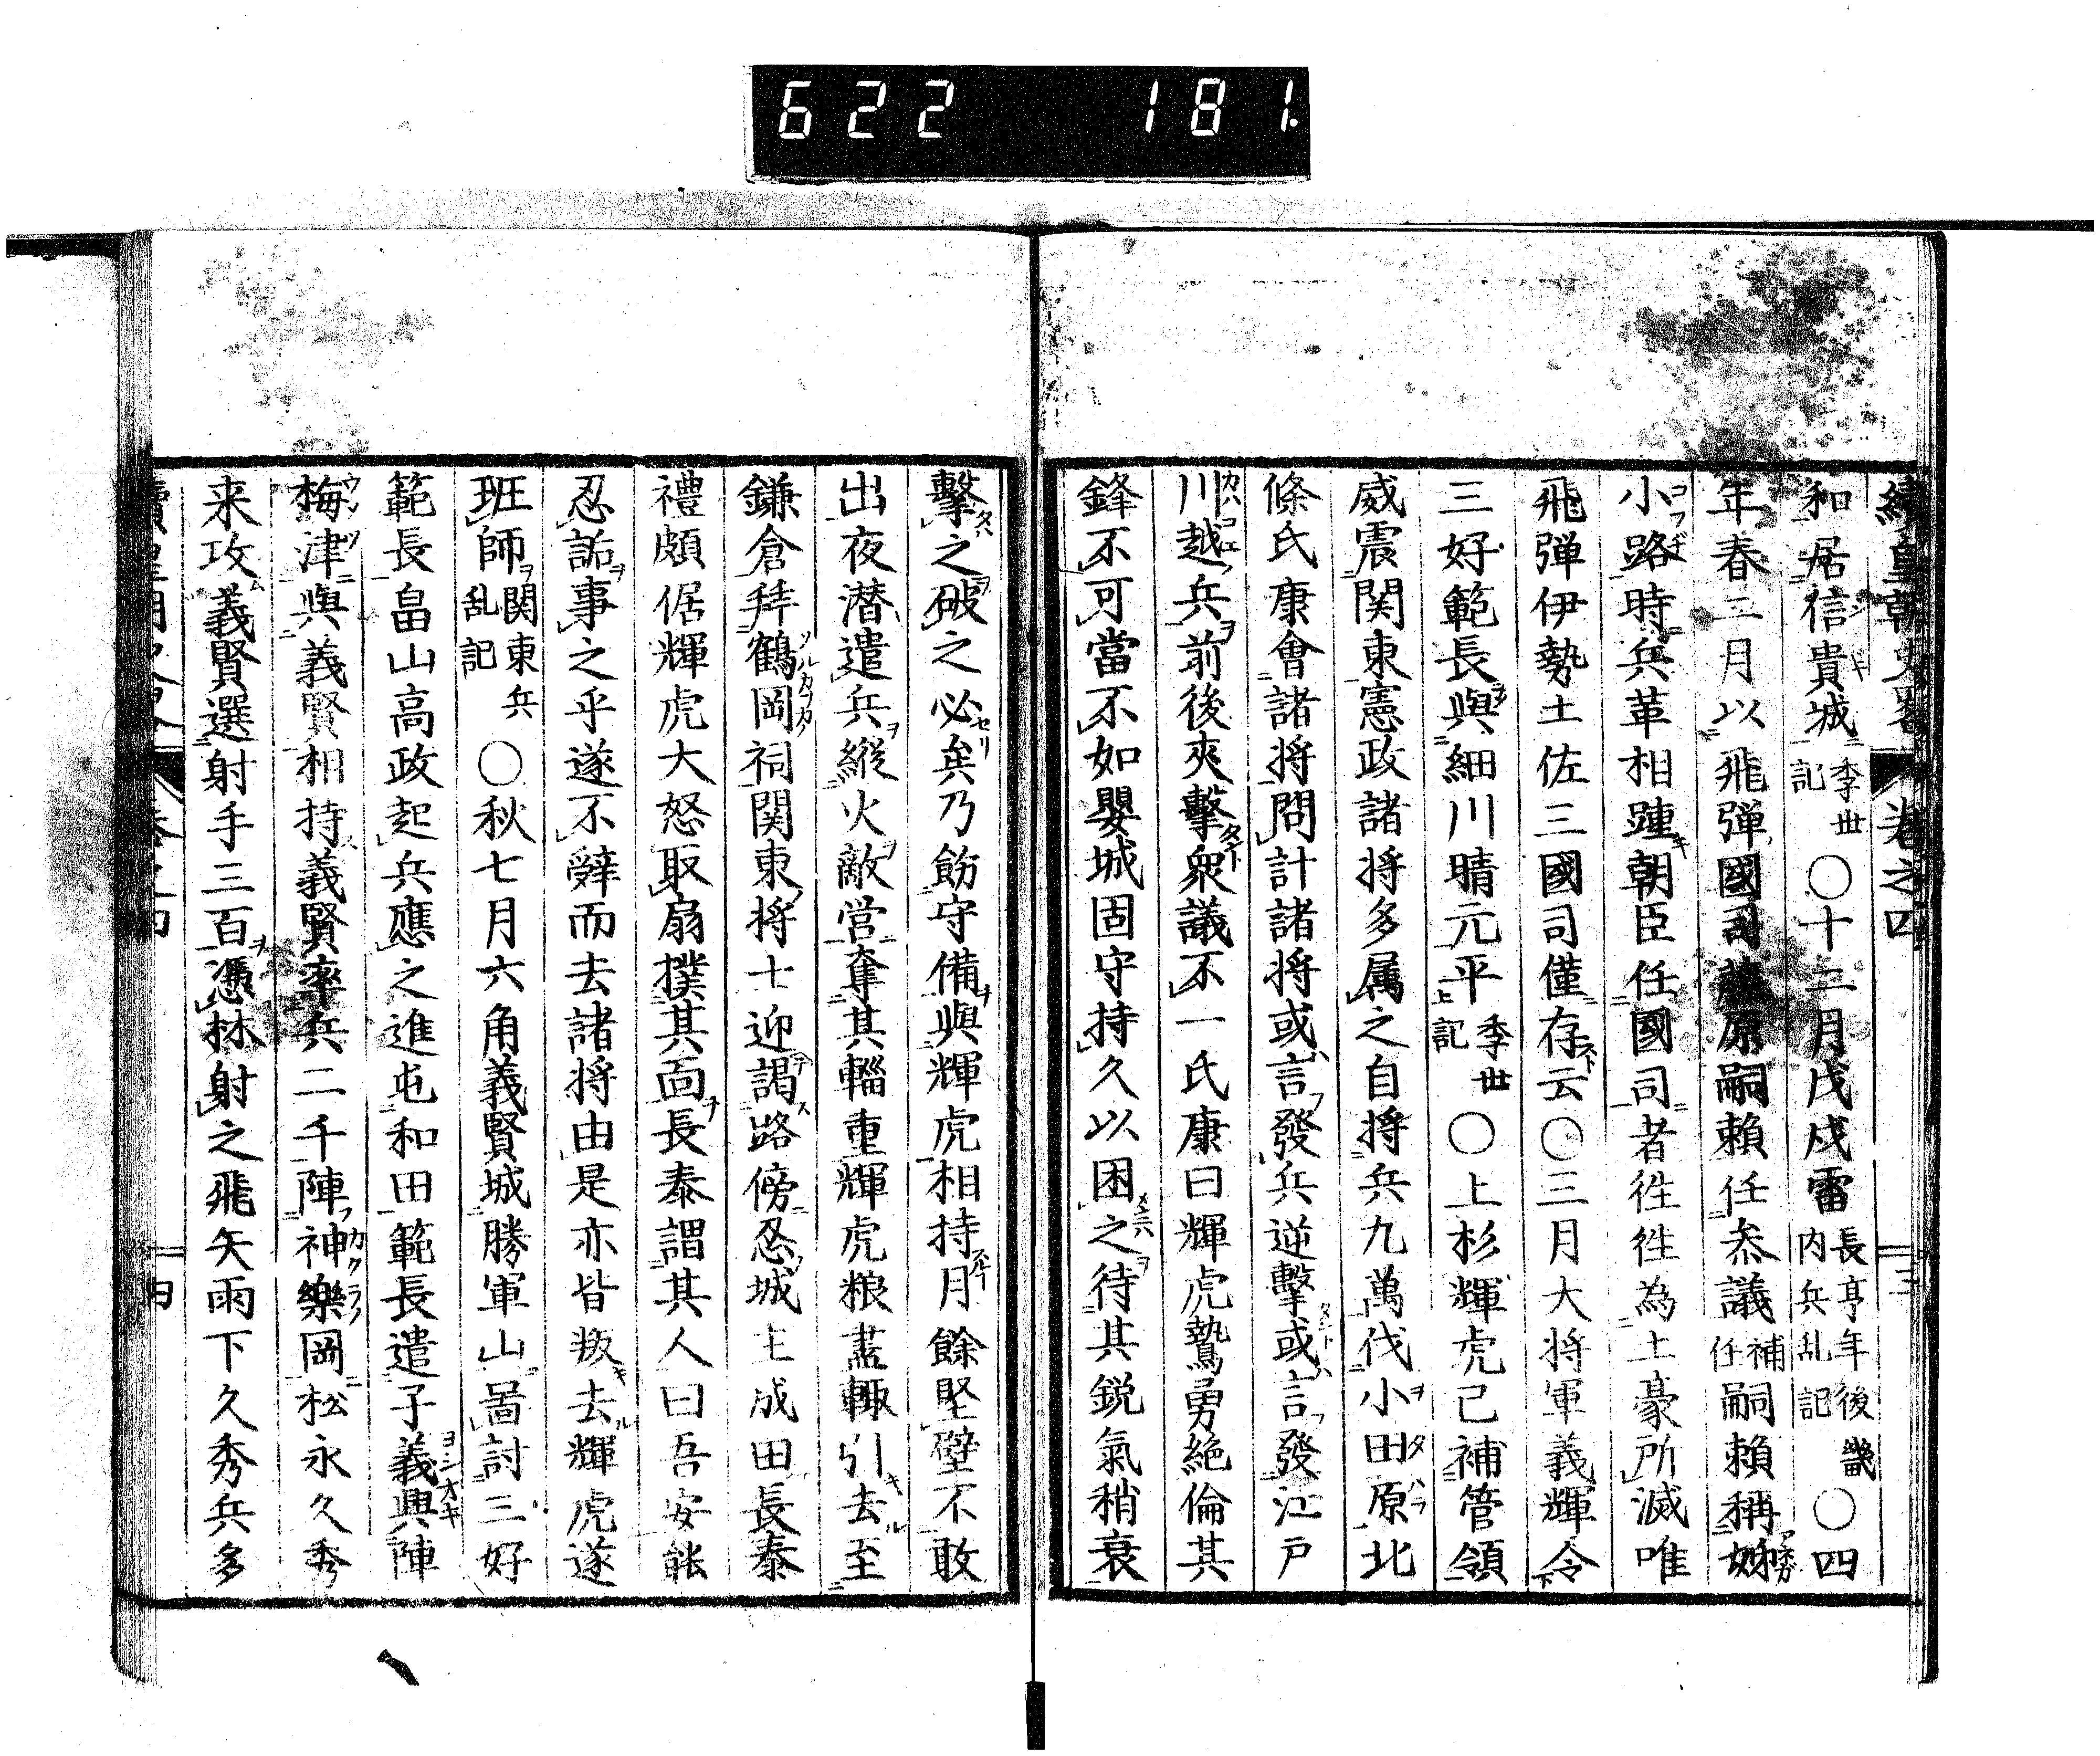 622 181.
續皇朝史畧 卷之四 三
和居信貴城季世記○十二月戊戌雷長享年後畿内兵乱記○四
年春二月以飛弾國司藤原嗣賴任叅議補任嗣賴稱姉
小路時兵革相踵朝臣任國司者徃徃為土豪所滅唯
飛弾伊勢土佐三國司僅存云○三月大将軍義輝令
三好範長與細川晴元平季世記○上杉輝虎已補管領
威震関東憲政諸将多属之自将兵九萬伐小田原北
條氏康會諸将問計諸将或言發兵逆擊或言發江戸
川越兵前後夾擊衆議不一氏康曰輝虎驁勇絶倫其
鋒不可當不如嬰城固守持久以困之待其鋭氣稍衰
擊之破之必矣乃飭守備與輝虎相持月餘堅壁不敢
出夜潜遣兵縱火敵営奪其輜重輝虎粮盡輙引去至
鎌倉拜鶴岡祠関東将士迎謁路傍忍城主成田長泰
禮頗倨輝虎大怒取扇撲其面長泰謂其人曰吾安能
忍詬事之乎遂不辤而去諸将由是亦皆叛去輝虎遂
班師関東兵乱記○秋七月六角義賢城勝軍山啚討三好
範長畠山高政起兵應之進屯和田範長遣子義興陣
梅津與義賢相持義賢率兵二千陣神樂岡松永久秀
来攻義賢選射手三百憑林射之飛矢雨下久秀兵多